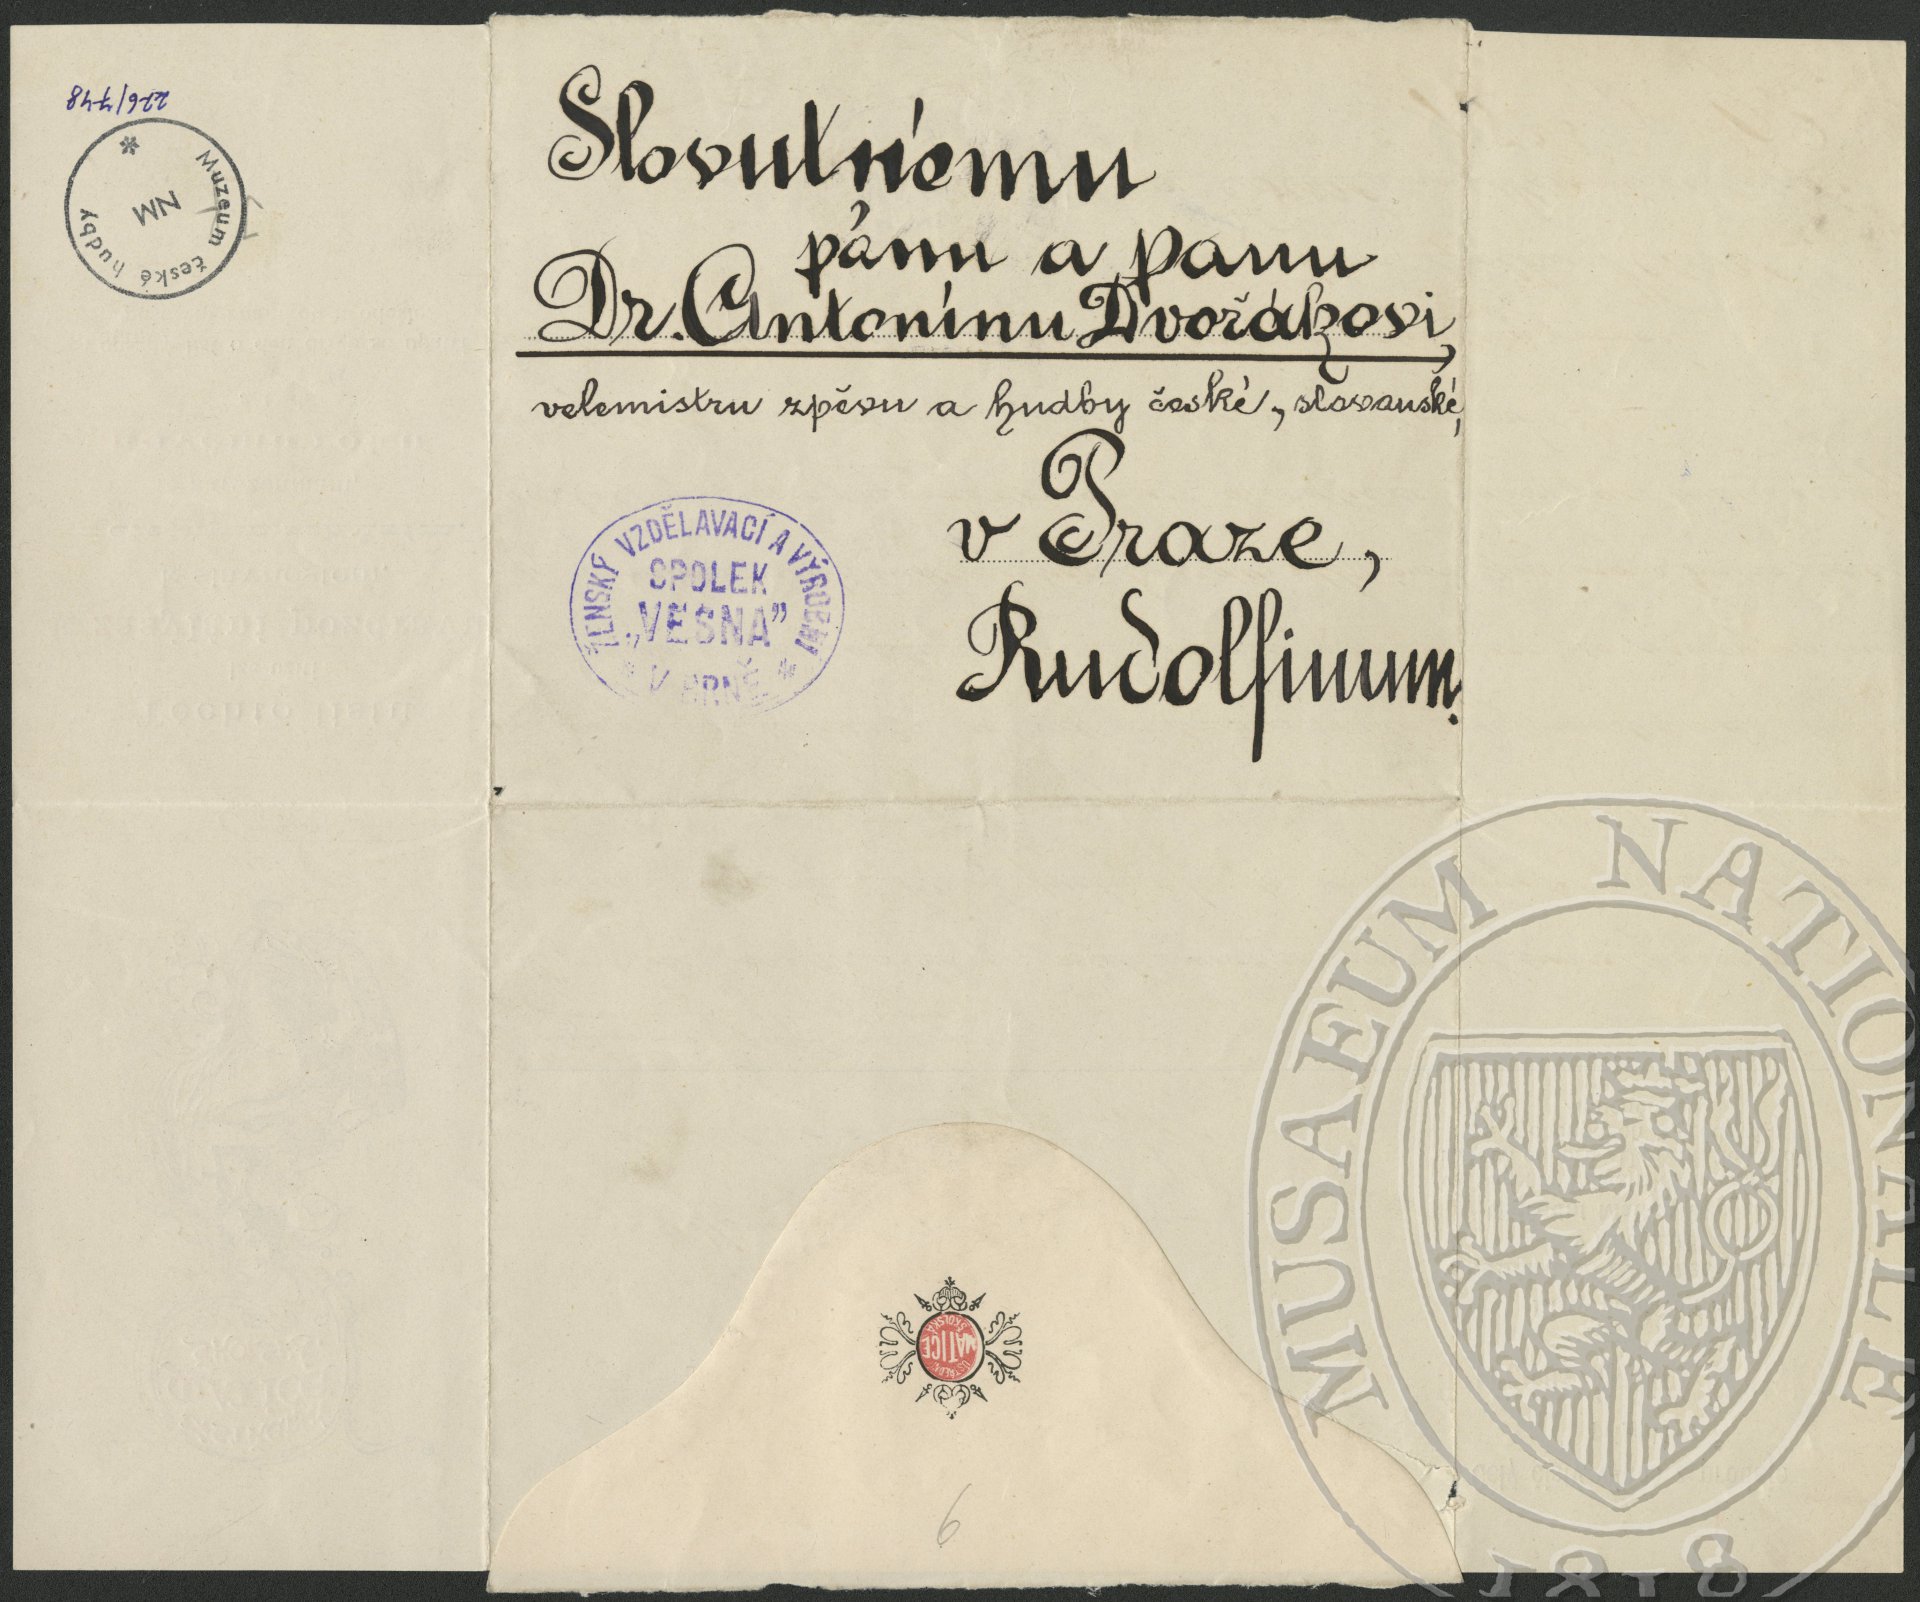 226/748
Muzeum české hudby
NM
Slovutnému
pánu a panu
Dr. Antonínu Dvořákovi,
velemistru zpěvu a hudby české, slovanské,
v Praze,
Rudolfinum.
ŽENSKÝ VZDĚLAVACÍ A VÝROBNÍ
SPOLEK
„VESNA”
* V BRNĚ *
MUSAEUM NATIONALE
1818
MATICE
ŠKOLSKÁ
6